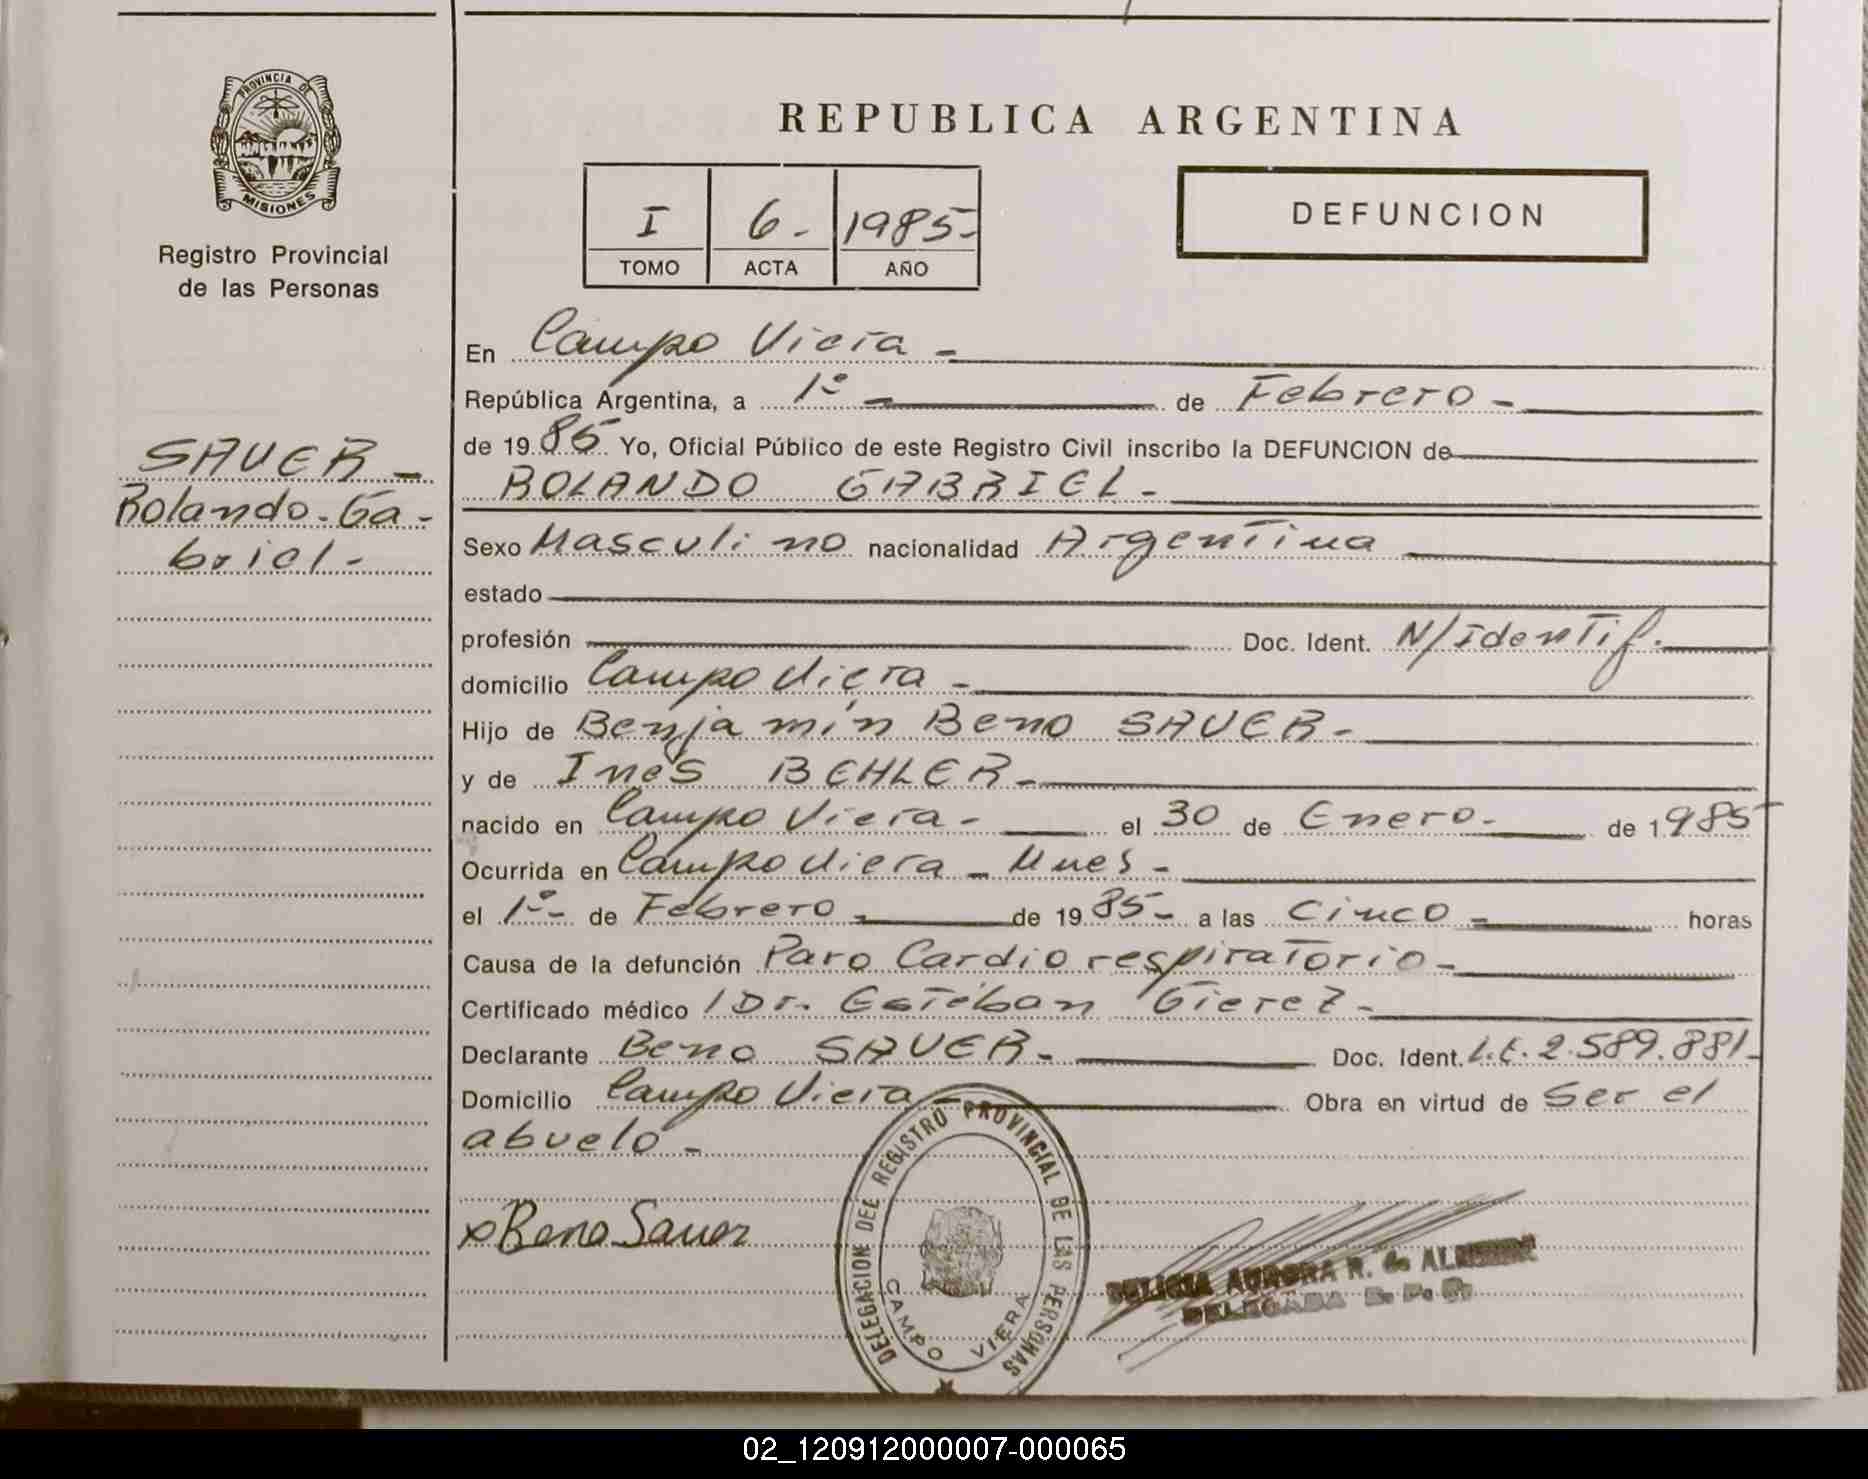 PROVINCIA DE
MISIONES
Registro Provincial
de las Personas
REPUBLICA ARGENTINA
I 6- 1985-
TOMO ACTA AÑO
DEFUNCION
SAUER-
Rolando-Ga-
briel-
En Campo Viera-
República Argentina, a 1º- de Febrero-
de 1985 Yo, Oficial Público de este Registro Civil inscribo la DEFUNCION de
ROLANDO GABRIEL-
Sexo Masculino nacionalidad Argentina
estado
profesión Doc. Ident. N/Identif.
domicilio Campo Viera-
Hijo de Benjamín Beno SAUER-
y de Inés BEHLER-
nacido en Campo Viera- el 30 de Enero- de 1985
Ocurrida en Campo Viera- Mnes-
el 1º- de Febrero- de 1985- a las Cinco- horas
Causa de la defunción Paro Cardiorespiratorio-
Certificado médico /Dr. Estéban Gierez-
Declarante Beno SAUER- Doc. Ident. L.E. 2.589.881-
Domicilio Campo Viera- Obra en virtud de Ser el
abuelo-
x Beno Sauer
DELEGACION DEL REGISTRO PROVINCIAL DE LAS PERSONAS
CAMPO VIERA
DELICIA AURORA R. de
DELEGADA R. P. P.
02_120912000007-000065